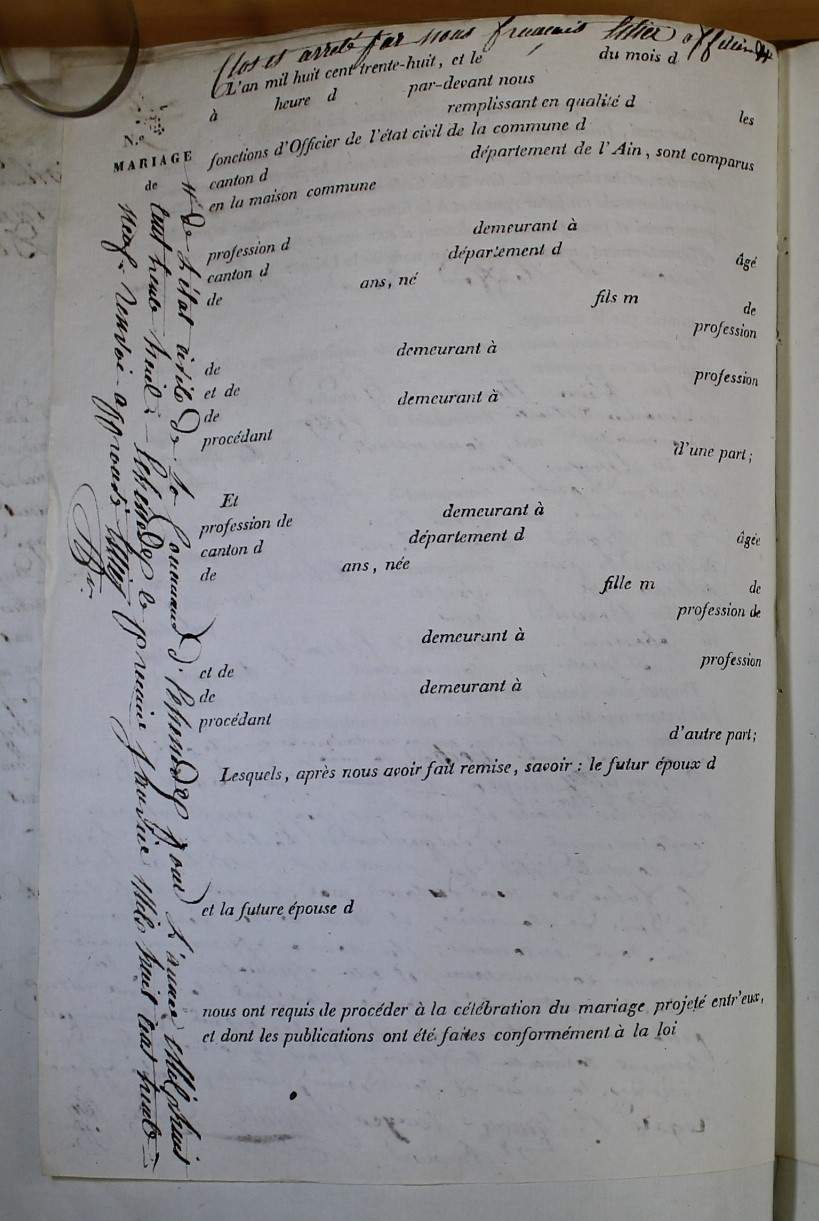 Clos et arreté par nous français Litier officier
L'an mil huit cent trente-huit, et le du mois d
à heure d par-devant nous
remplissant en qualité d les
N.º
fonctions d'Officier de l'état civil de la commune d
MARIAGE
de
canton d département de l'Ain, sont comparus
en la maison commune
demeurant à
profession d département d
canton d âgé
de ans, né
fils m de
profession
de demeurant à
et de profession
de demeurant à
procédant d'une part;
Et
profession de demeurant à
canton d département d âgée
de ans, née
fille m de
profession de
demeurant à
et de profession
de demeurant à
procédant d'autre part;
Lesquels, après nous avoir fait remise, savoir : le futur époux d
et la future épouse d
nous ont requis de procéder à la célébration du mariage projeté entr'eux,
et dont les publications ont été faites conformément à la loi
de L'état civil de la Commune d' pour L'année Mil huit
Cent trente huit; le premier Janvier Mil huit Cent trente
neuf. Renvoi approuvé